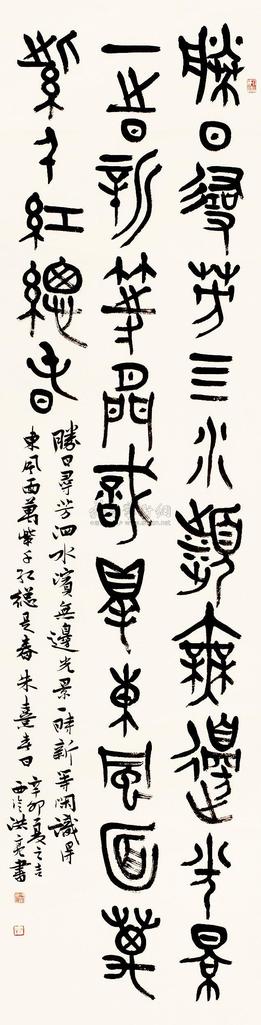 勝日尋芳亖水瀕無邊光景
一時新等閒識得東風面萬
紫千紅總春
勝日尋芳泗水濱無邊光景一時新等閒識得
東風面萬紫千紅總是春 朱熹春日 辛卯夏之
西泠洪亮書